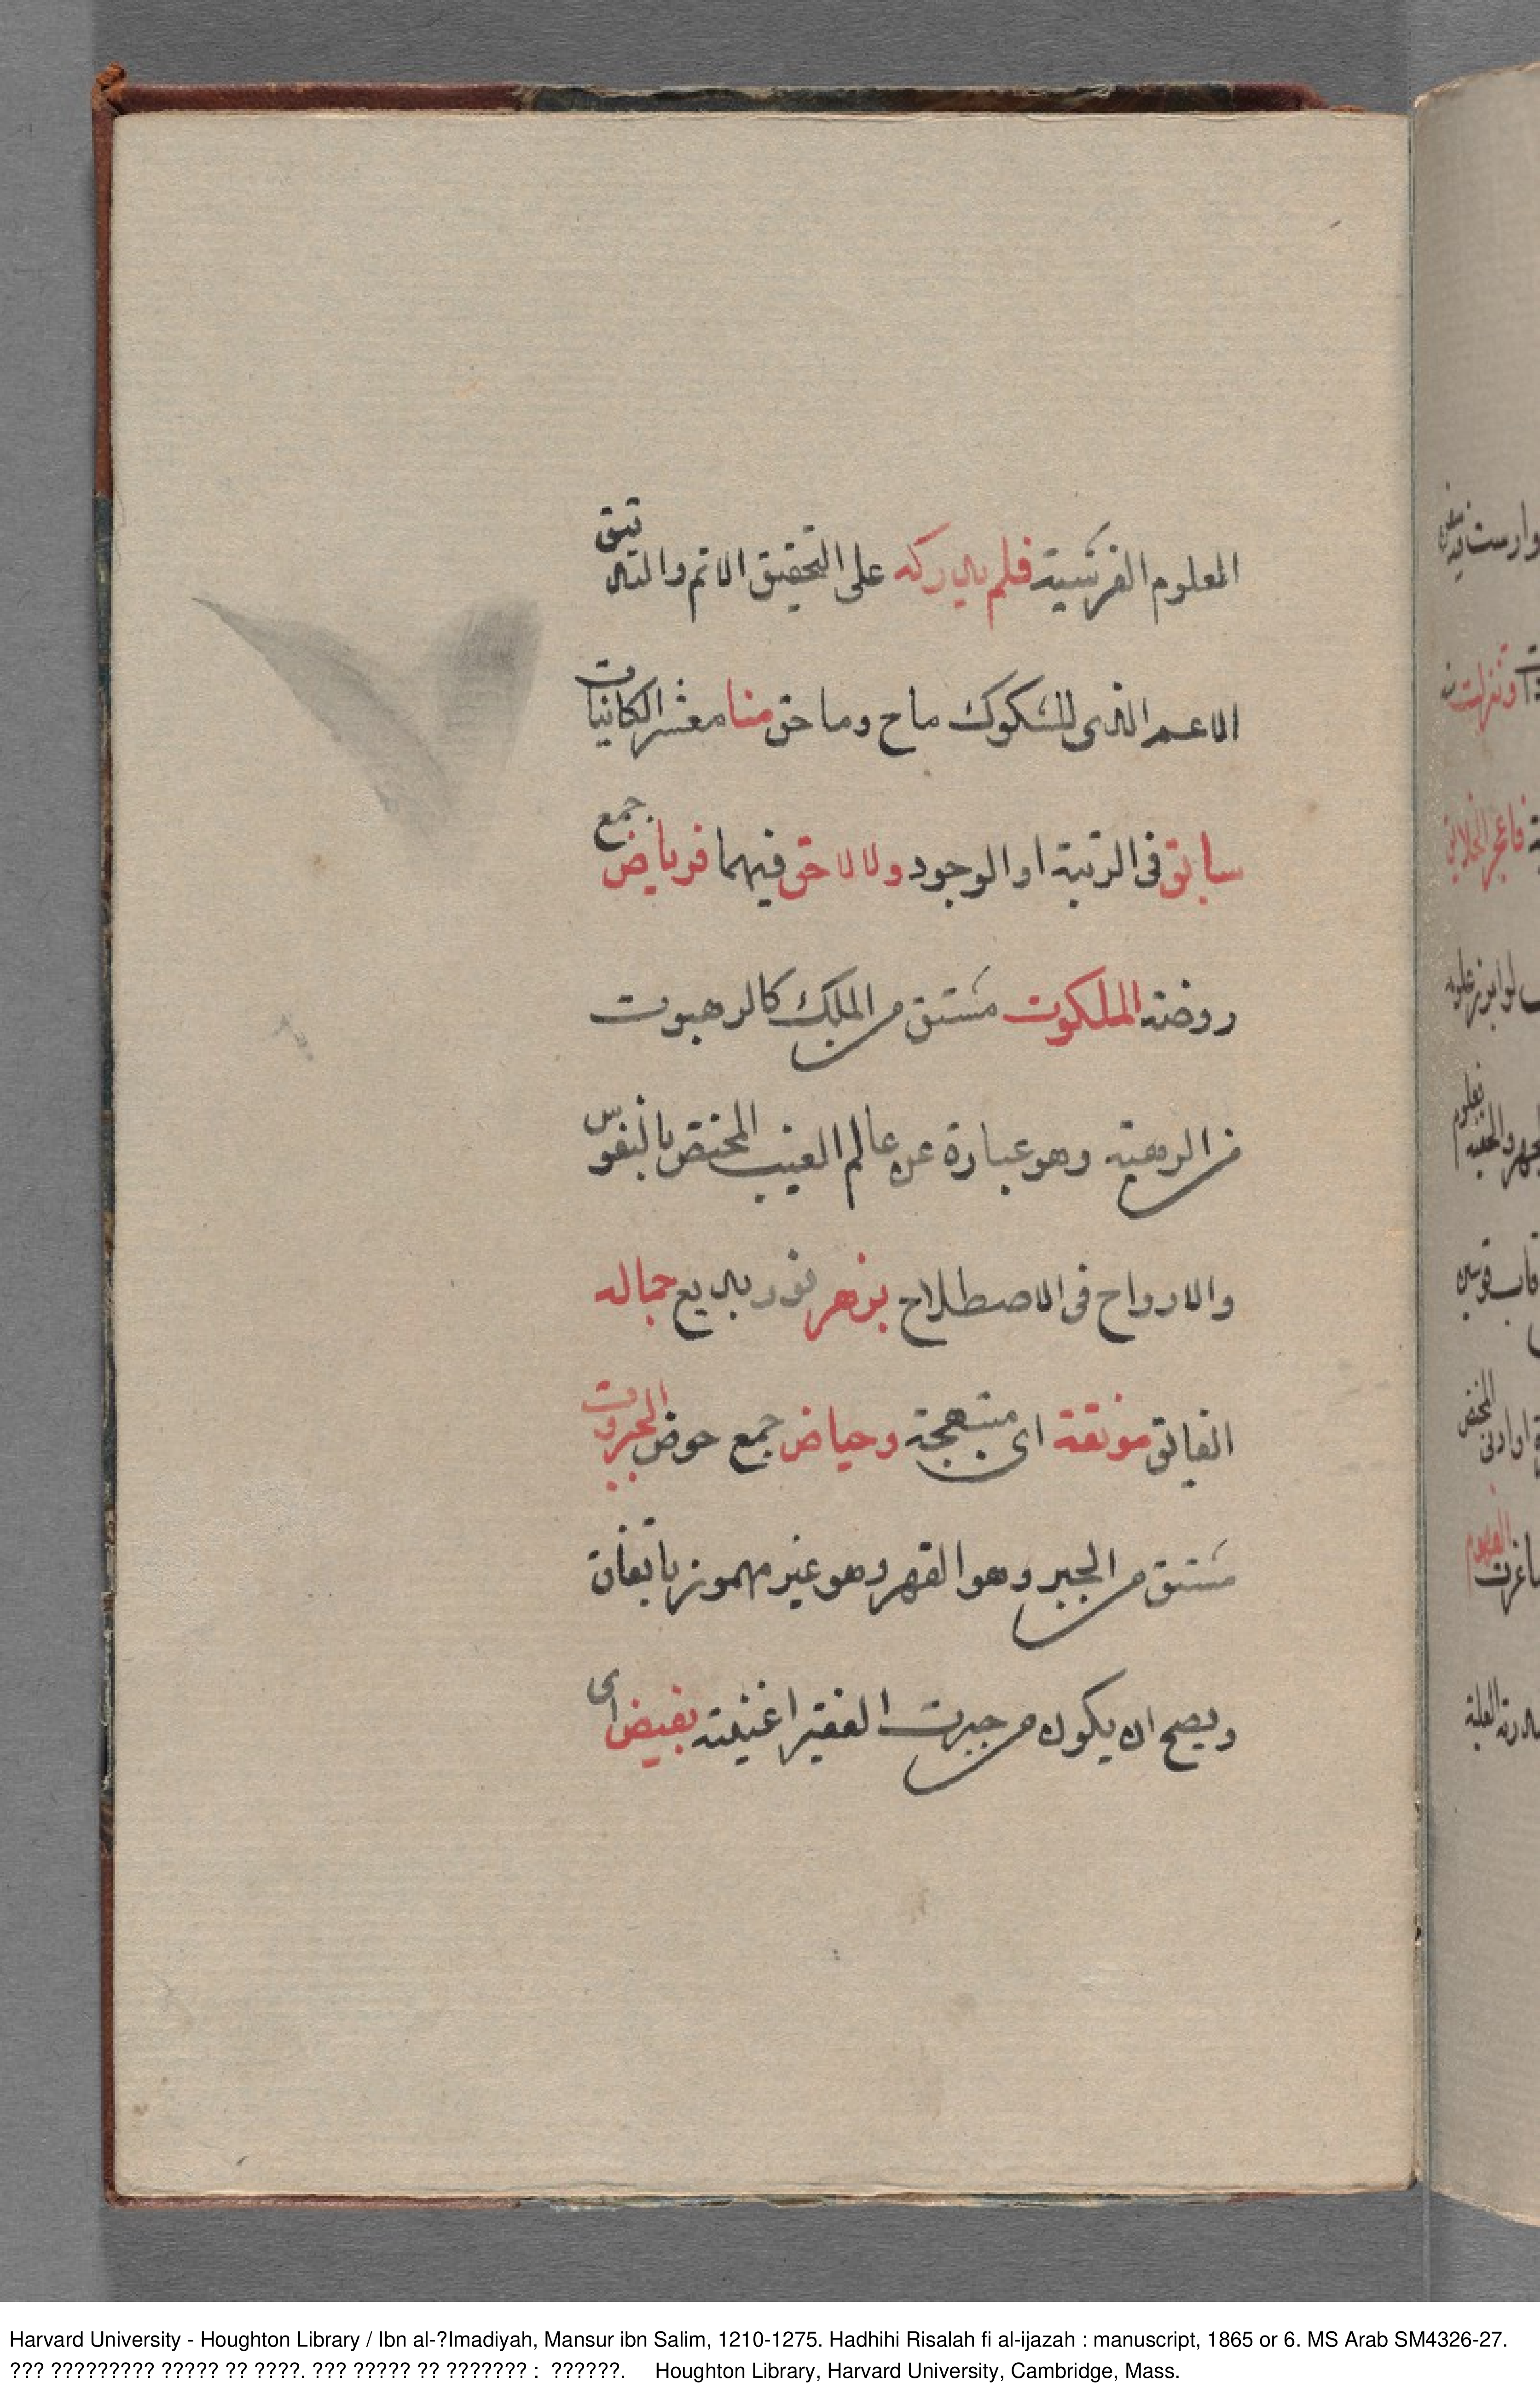 المعلوم الفرشية فلم يدركه على التحقيق الاتم والتدقيق
الاعم الذى للشكوك ماح وماحق منا معشر الكائنات
سابق فى الرتبة او الوجود ولا لاحق فيهما فرياض جمع
روضة الملكوت مشتق من الملك كالرهبوت
من الرهبة وهو عبارة عن عالم الغيب المختص بالنفوس
والارواح فى الاصطلاح بزهر نور بديع جماله
الفائق مونقة اى مبتهجة وحياض جمع حوض الجبروت
مشتق من الجبر وهو القهر وهو غير مهموز باتفاق
ويصح ان يكون من جبرت الفقير اغنيته بفيض اى
Harvard University - Houghton Library / Ibn al-?Imadiyah, Mansur ibn Salim, 1210-1275. Hadhihi Risalah fi al-ijazah : manuscript, 1865 or 6. MS Arab SM4326-27.
??? ????????? ????? ?? ????. ??? ????? ?? ??????? : ??????. Houghton Library, Harvard University, Cambridge, Mass.